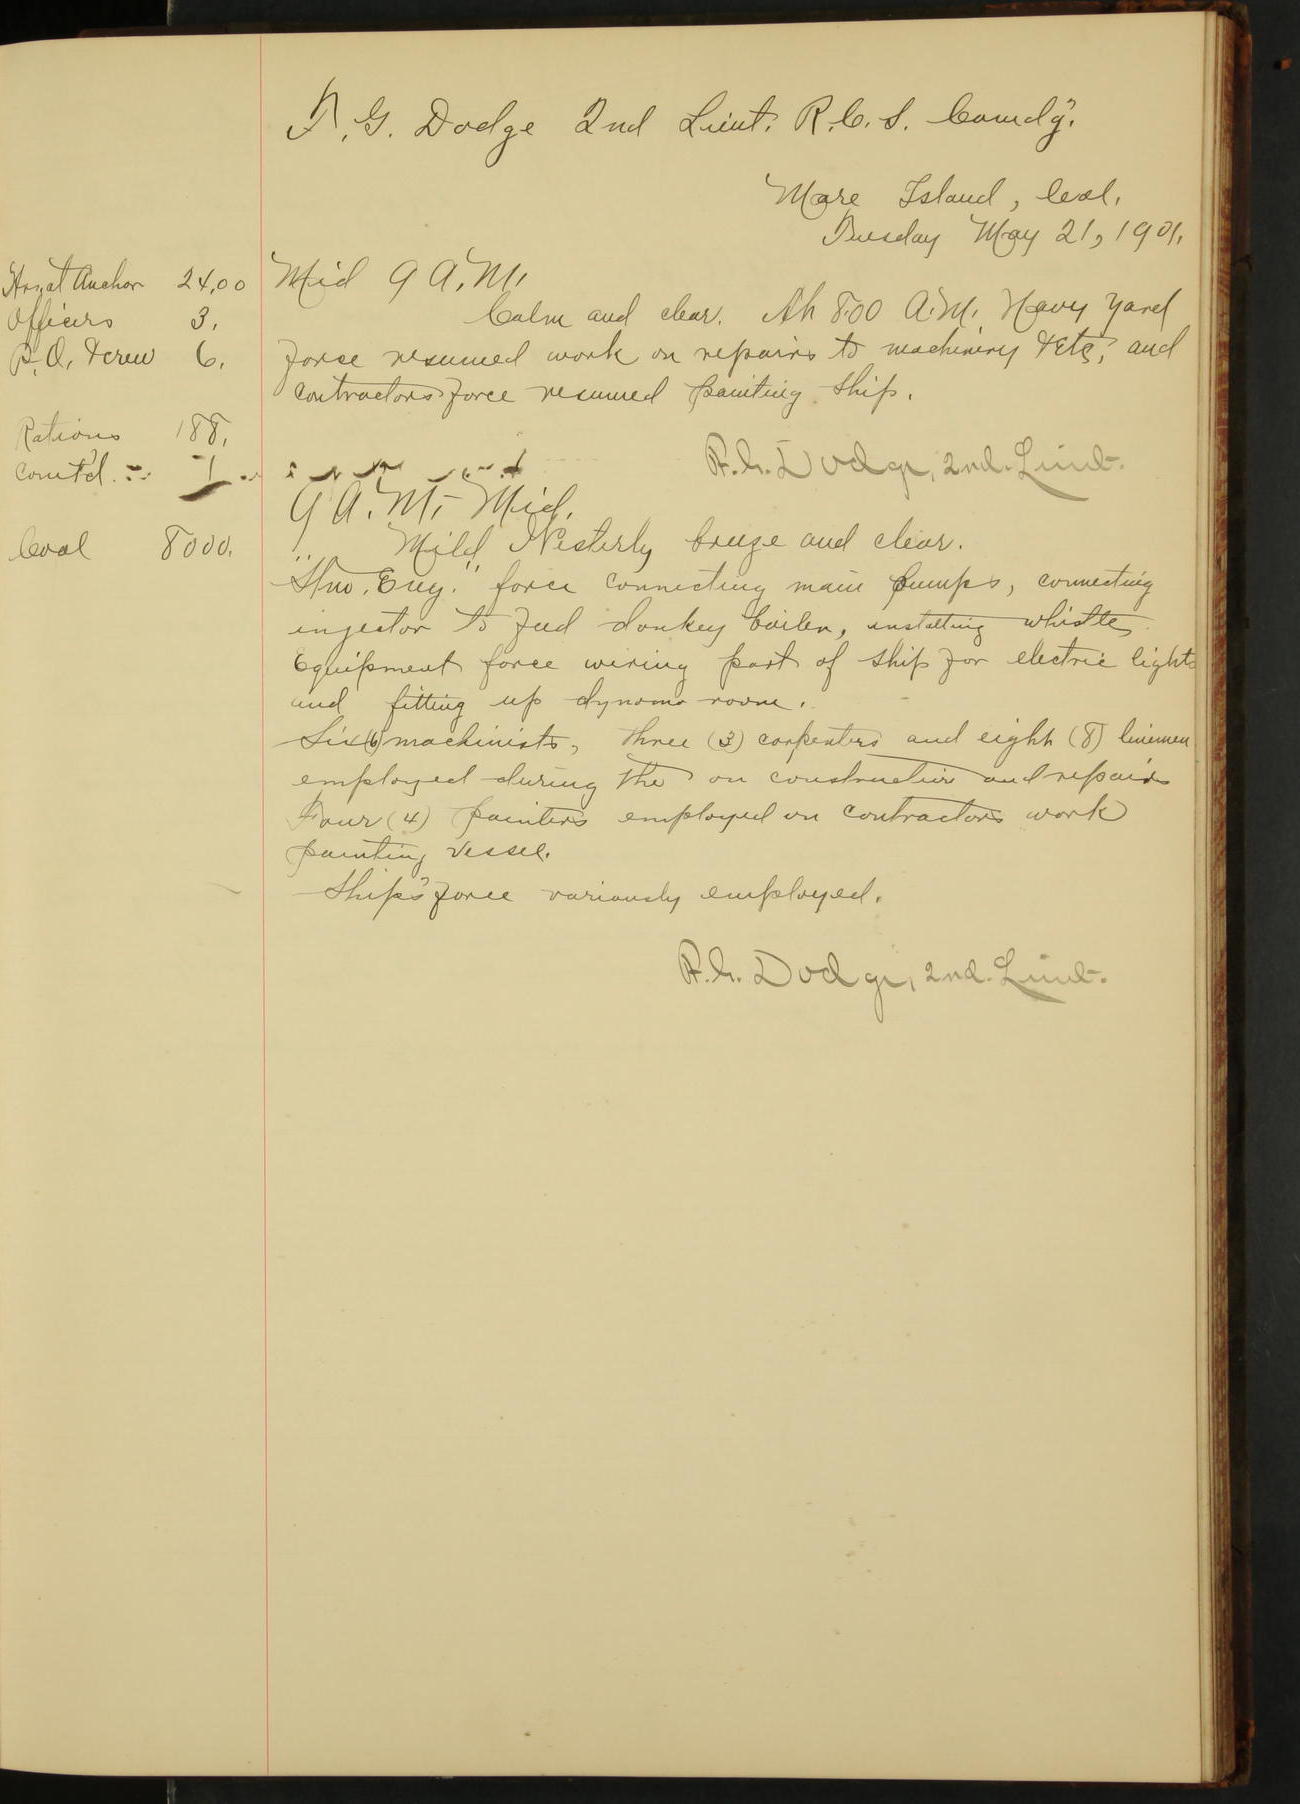 F. G. Dodge 2nd Lieut. R.C.S. Comd'g.
Mare Island, Cal.
Tuesday May 21, 1901.
Hrs. at Anchor 24,00
Officers 3.
P. O. & Crew 6.
Rations 188.
Comt'd. 1
Coal 8000.
Mid 9 A.M.
Calm and clear. At 8.00 A.M. Navy Yard
force resumed work on repairs to machinery & Etc., and
contractors force resumed painting ship.
F. G. Dodge, 2nd. Lieut.
9 A.M. - Mid.
Mild Westerly breeze and clear.
"Stm. Eng." force connecting main pumps, connecting
injector to feed donkey boiler, installing whistle
Equipment force wiring part of ship for electric lights
and fitting up dynamo room.
Six (6) machinists, three (3) carpenters and eight (8) linemen
employed during the on construction and repairs
Four (4) painters employed on contractors work
painting vessel.
Ship's force variously employed.
F. G. Dodge, 2nd. Lieut.